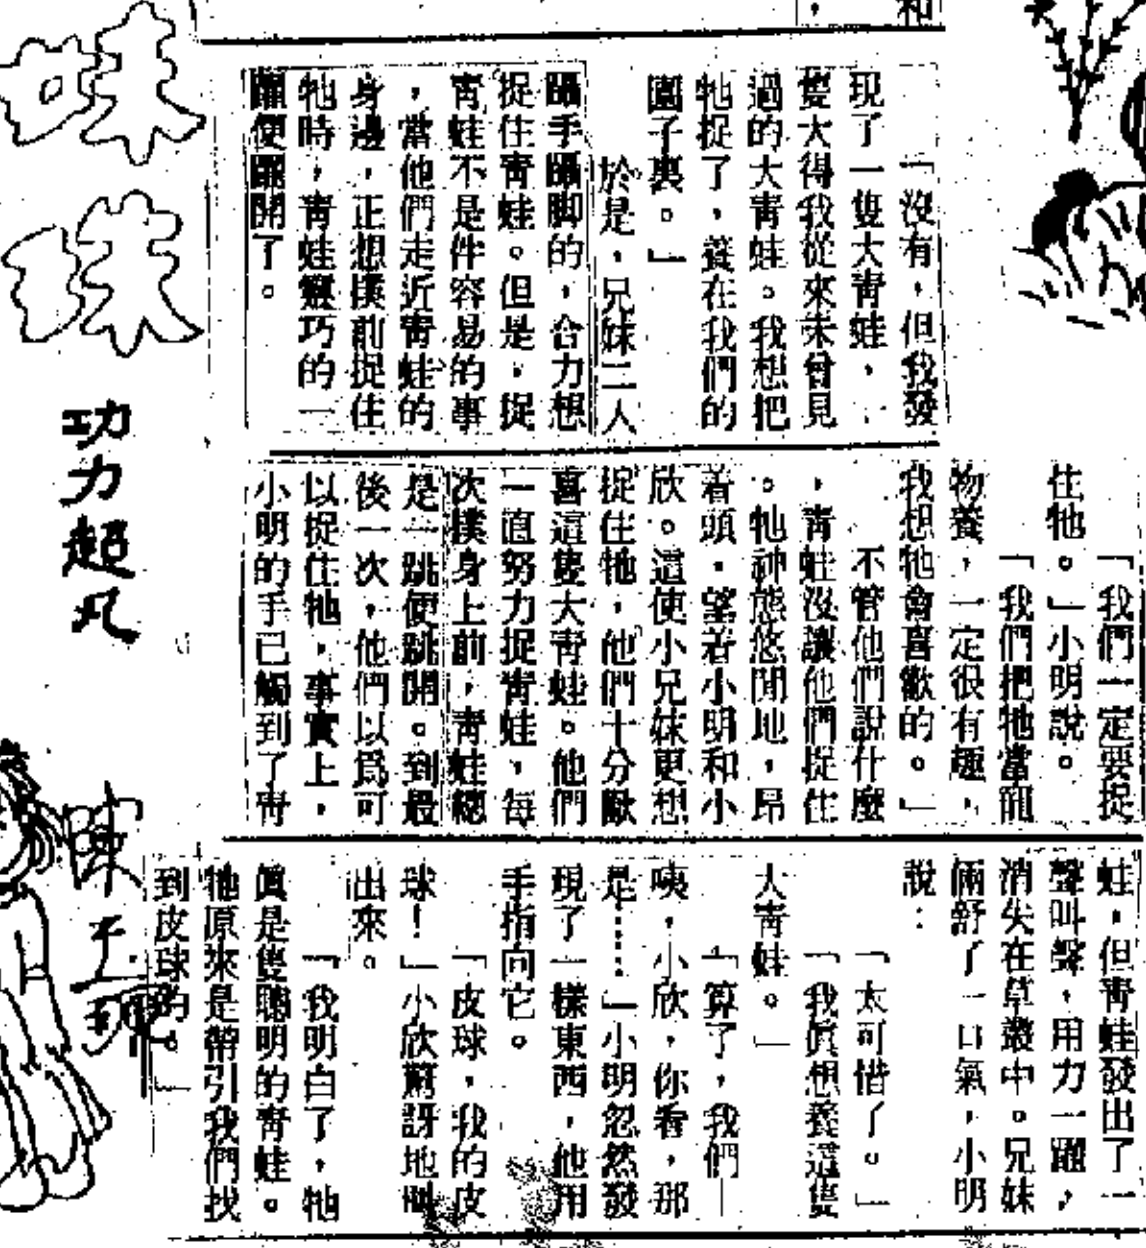 和
，
「沒有，但我發
現了一隻大青蛙，
隻大得我從來未曾見
過的大青蛙。我想把
牠捉了，養在我們的
園子裏。」
於是，兄妹二人
躡手躡脚的，合力想
捉住青蛙。但是，捉
青蛙不是件容易的事
，當他們走近青蛙的
身邊，正想撲前捉住
牠時，青蛙靈巧的一
躍便躍開了。
「我們一定要捉
住牠。」小明說。
「我們把牠當寵
物養，一定很有趣，
我想牠會喜歡的。」
不管他們說什麼
，青蛙沒讓他們捉住
。牠神態悠閒地，昂
着頭，望着小明和小
欣。這使小兄妹更想
捉住牠，他們十分歡
喜這隻大青蛙。他們
一直努力捉青蛙，每
次撲身上前，青蛙總
是一跳便跳開。到最
後一次，他們以爲可
以捉住牠，事實上，
小明的手已觸到了靑
蛙，但青蛙發出了一
聲叫聲，用力一躍，
消失在草叢中。兄妹
倆舒了一口氣，小明
說：
「太可惜了。」
「我眞想養這隻
大青蛙。」
「算了，我們—
咦，小欣，你看，那
是……」小明忽然發
現了一樣東西，他用
手指向它。
「皮球，我的皮
球！」小欣驚訝地叫
出來。
「我明白了，牠
眞是隻聰明的青蛙。
牠原來是帶引我們找
到皮球的。」
妹妹
功力超凡
陳子